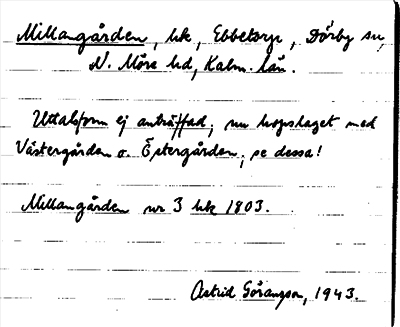 Millangården, hk, Ebbetorp, Dörby sn,
N. Möre hd, Kalm. län.
Uttalsform ej anträffad; nu hopslaget med
Västergården o. Östergården; se dessa!
Millangården nr 3 hk 1803.
Astrid Göranson, 1943.